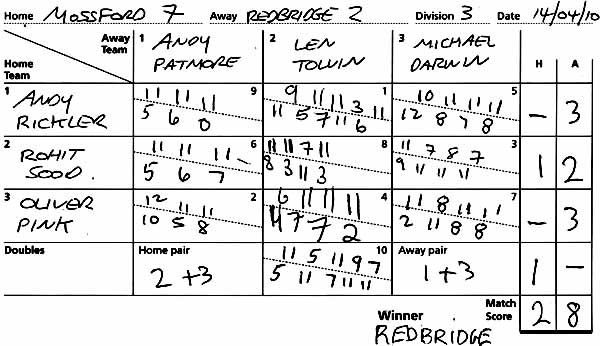 Home MOSSFORD 7 Away REDBRIDGE 2 Division 3 Date 14/04/10
Away Team
Home Team
1 ANDY PATMORE
2 LEN TOLVIN
3 MICHAEL DARNIN
H A
1 ANDY RICKLER
9
11 11 11
5 6 0
1
9 11 11 3 11
11 5 7 11 6
5
10 11 11 11
12 8 7 8
- 3
2 ROHIT SOOD.
6
11 11 11 -
5 6 7
8
11 11 7 11
8 3 11 3
3
11 7 8 7
9 11 11 11
1 2
3 OLIVER PINK
2
12 11 11
10 5 8
4
6 11 11 11
11 7 7 2
7
11 8 11 11
2 11 8 8
- 3
Doubles
Home pair
2 +3
10
11 5 11 9 7
5 11 7 11 11
Away pair
1 +3
1 -
Winner
REDBRIDGE
Match Score
2 8